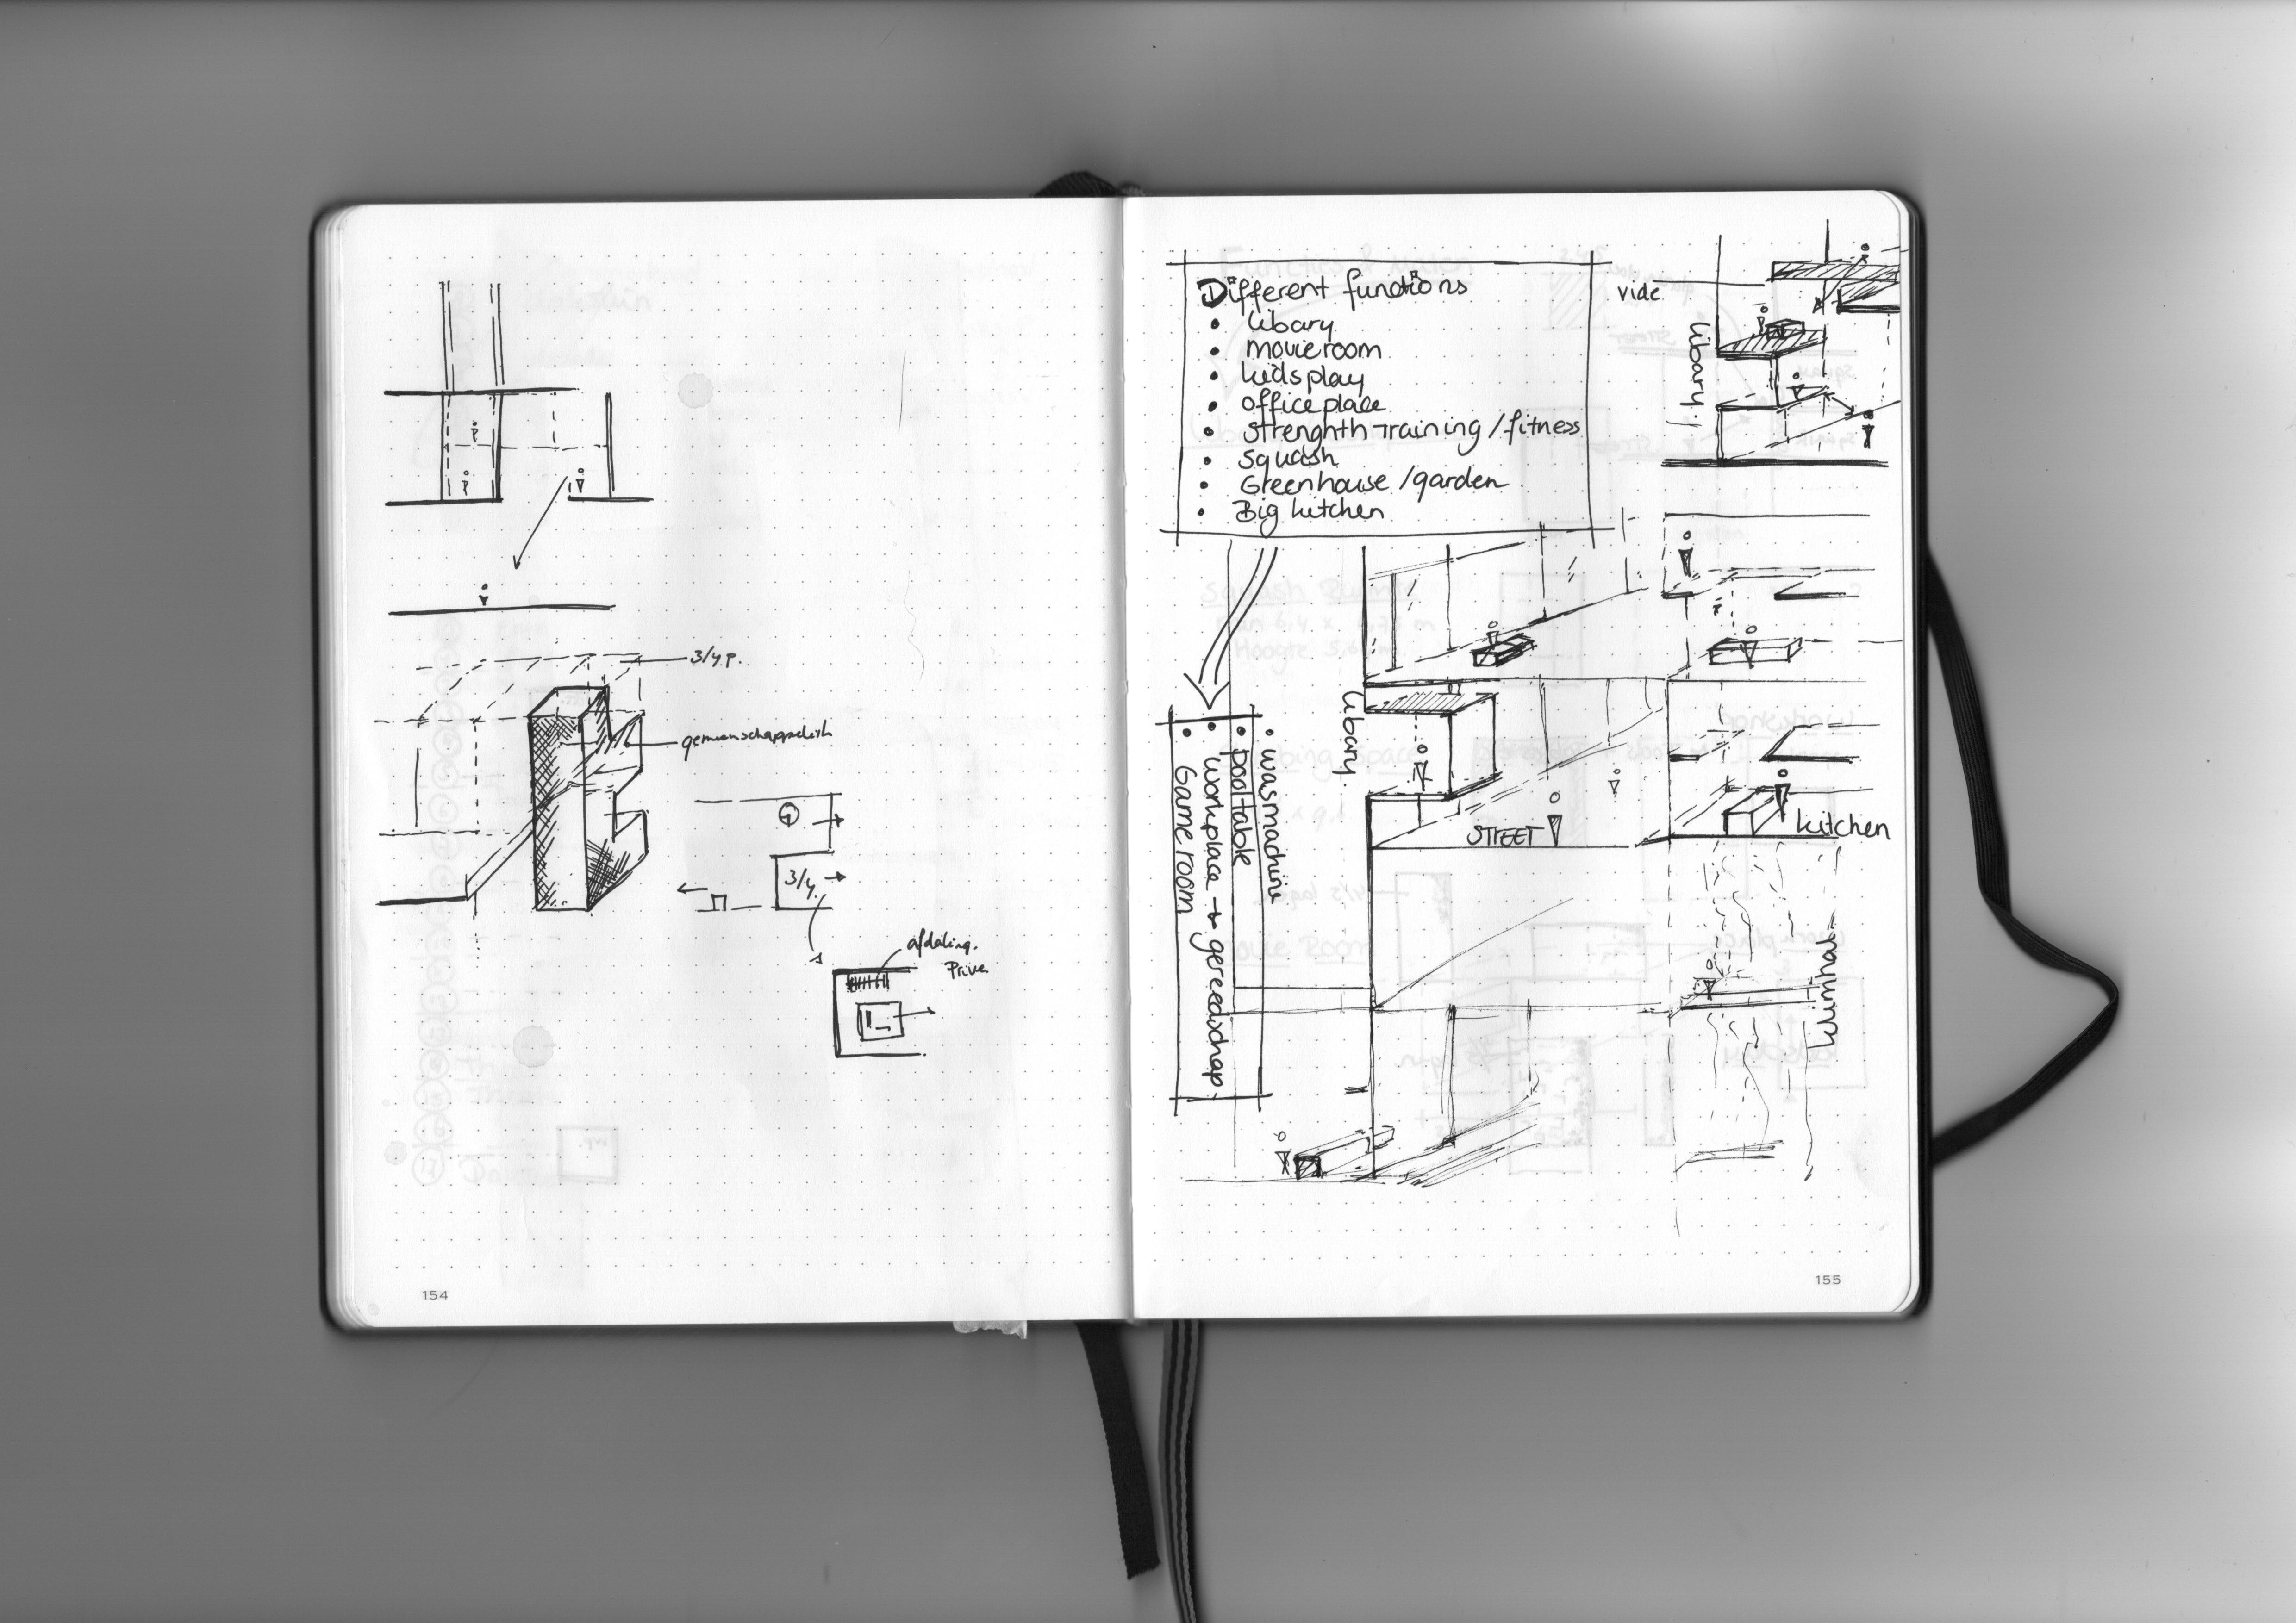 3/4 p.
gemeenschappelijk
G
3/4
afdaling.
Prive
154
Different functions
• libary
• movieroom
• kidsplay
• office place
• strenghth-training / fitness
• squash
• Greenhouse / garden
• Big kitchen
vide
libary.
• wasmachine
• Pooltable
• workplace → gereedschap
• Game room
libary.
STREET
kitchen
klimhal
155